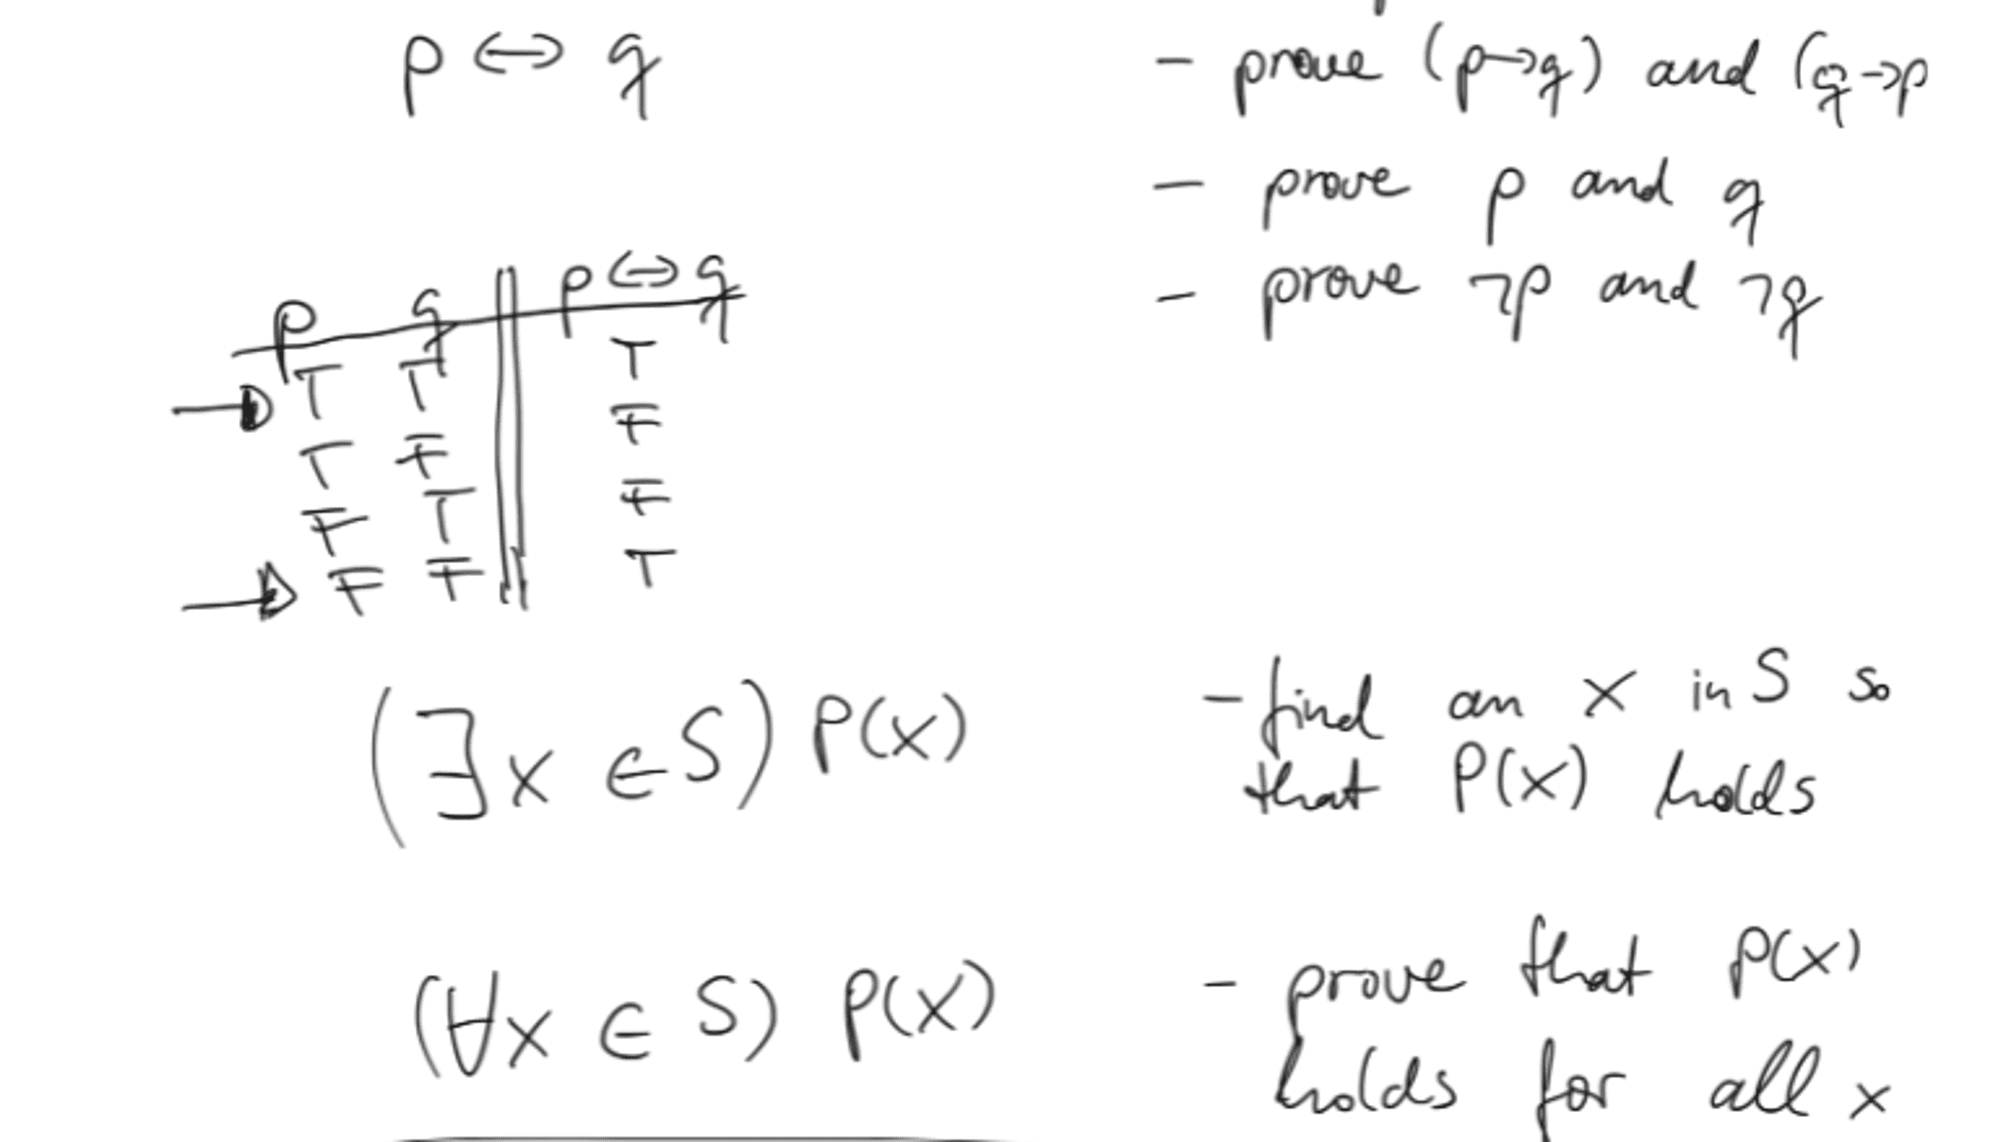 p ↔ q
- prove (p→q) and (q→p
- prove p and q
- prove ¬p and ¬q
p q p ↔ q
T T T
T F F
F T F
F F T
(∃x ∈ S) P(x)
- find an x in S so
that P(x) holds
(∀x ∈ S) P(x)
- prove that P(x)
holds for all x